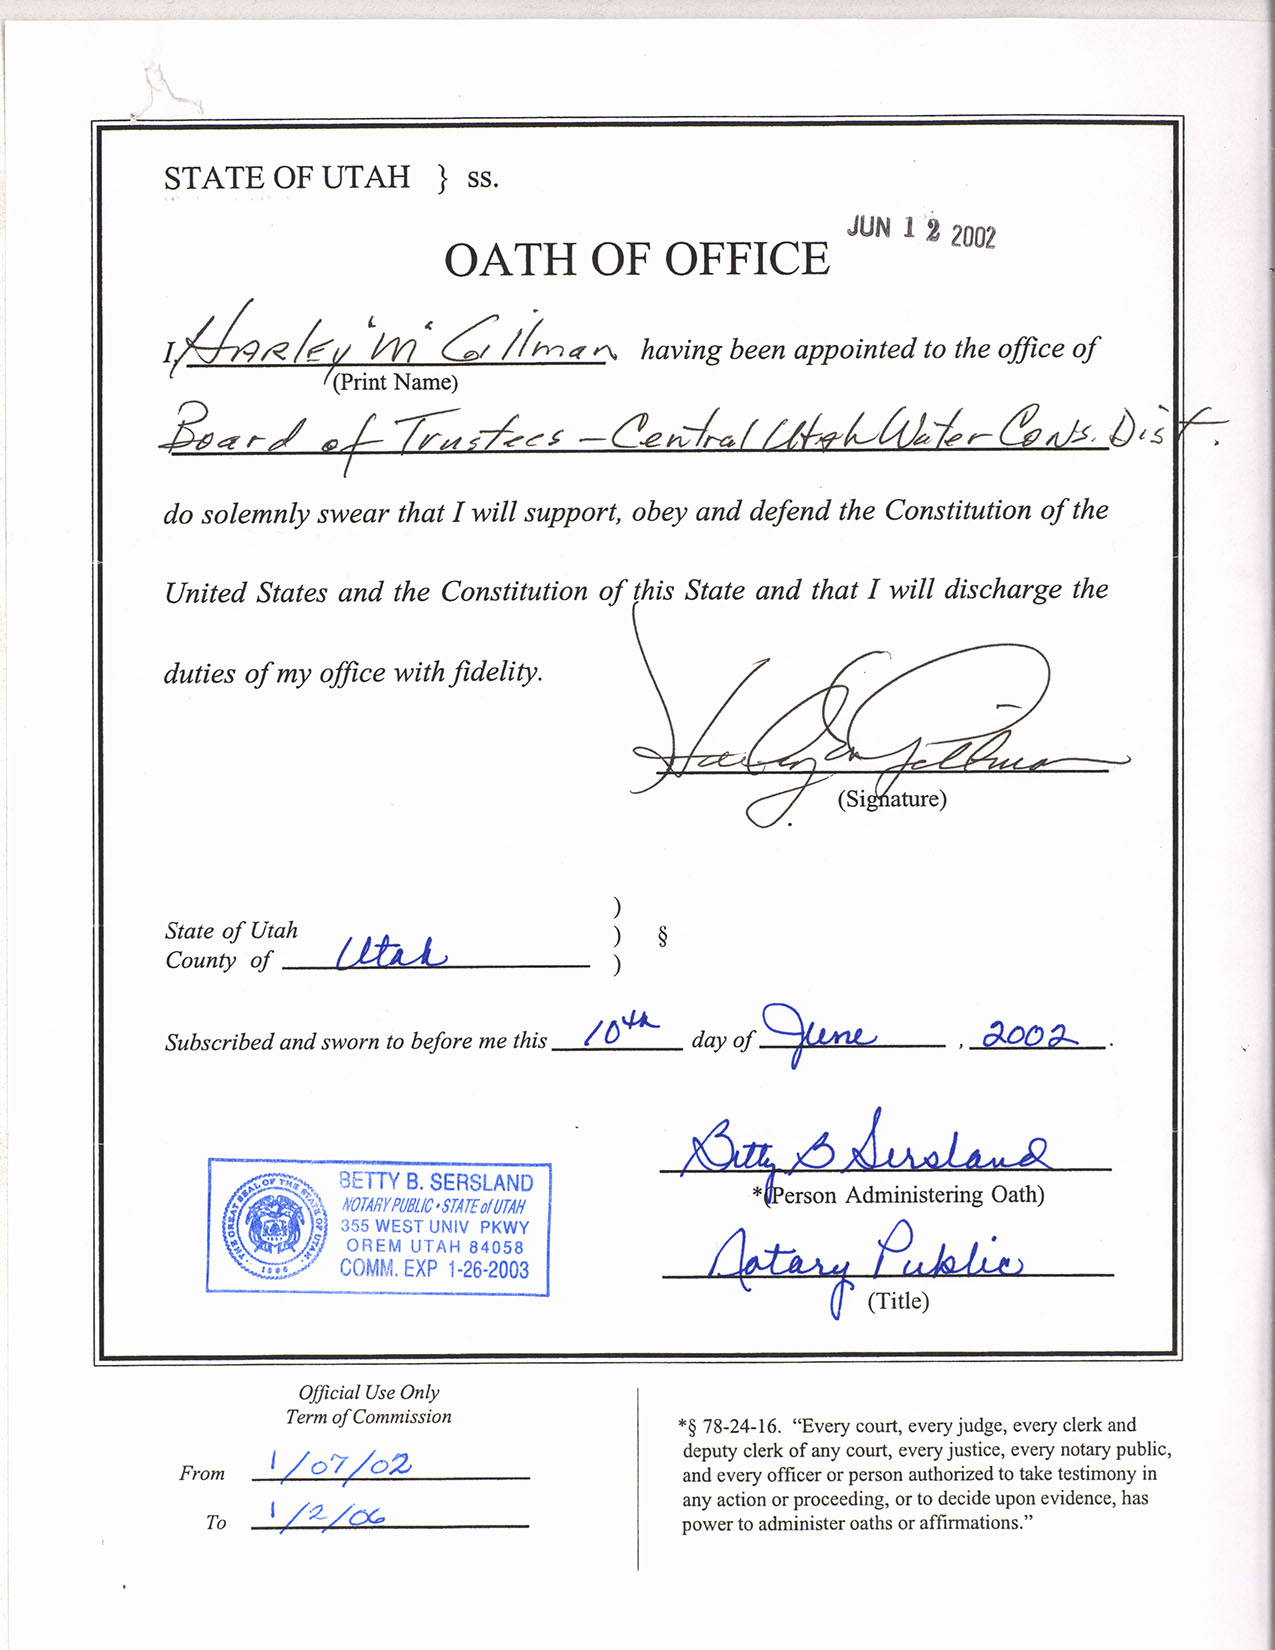 STATE OF UTAH } ss.
JUN 12 2002
OATH OF OFFICE
I, Harley "M" Gillman having been appointed to the office of
(Print Name)
Board of Trustees – Central Utah Water Cons. Dist.
do solemnly swear that I will support, obey and defend the Constitution of the
United States and the Constitution of this State and that I will discharge the
duties of my office with fidelity.
Harley M Gillman
(Signature)
State of Utah )
) §
County of Utah )
Subscribed and sworn to before me this 10th day of June, 2002.
Betty B Sersland
*(Person Administering Oath)
Notary Public
(Title)
THE GREAT SEAL OF THE STATE OF UTAH
1896
BETTY B. SERSLAND
NOTARY PUBLIC • STATE of UTAH
355 WEST UNIV PKWY
OREM UTAH 84058
COMM. EXP 1-26-2003
Official Use Only
Term of Commission
From 1/07/02
To 1/2/06
*§ 78-24-16. “Every court, every judge, every clerk and
deputy clerk of any court, every justice, every notary public,
and every officer or person authorized to take testimony in
any action or proceeding, or to decide upon evidence, has
power to administer oaths or affirmations.”